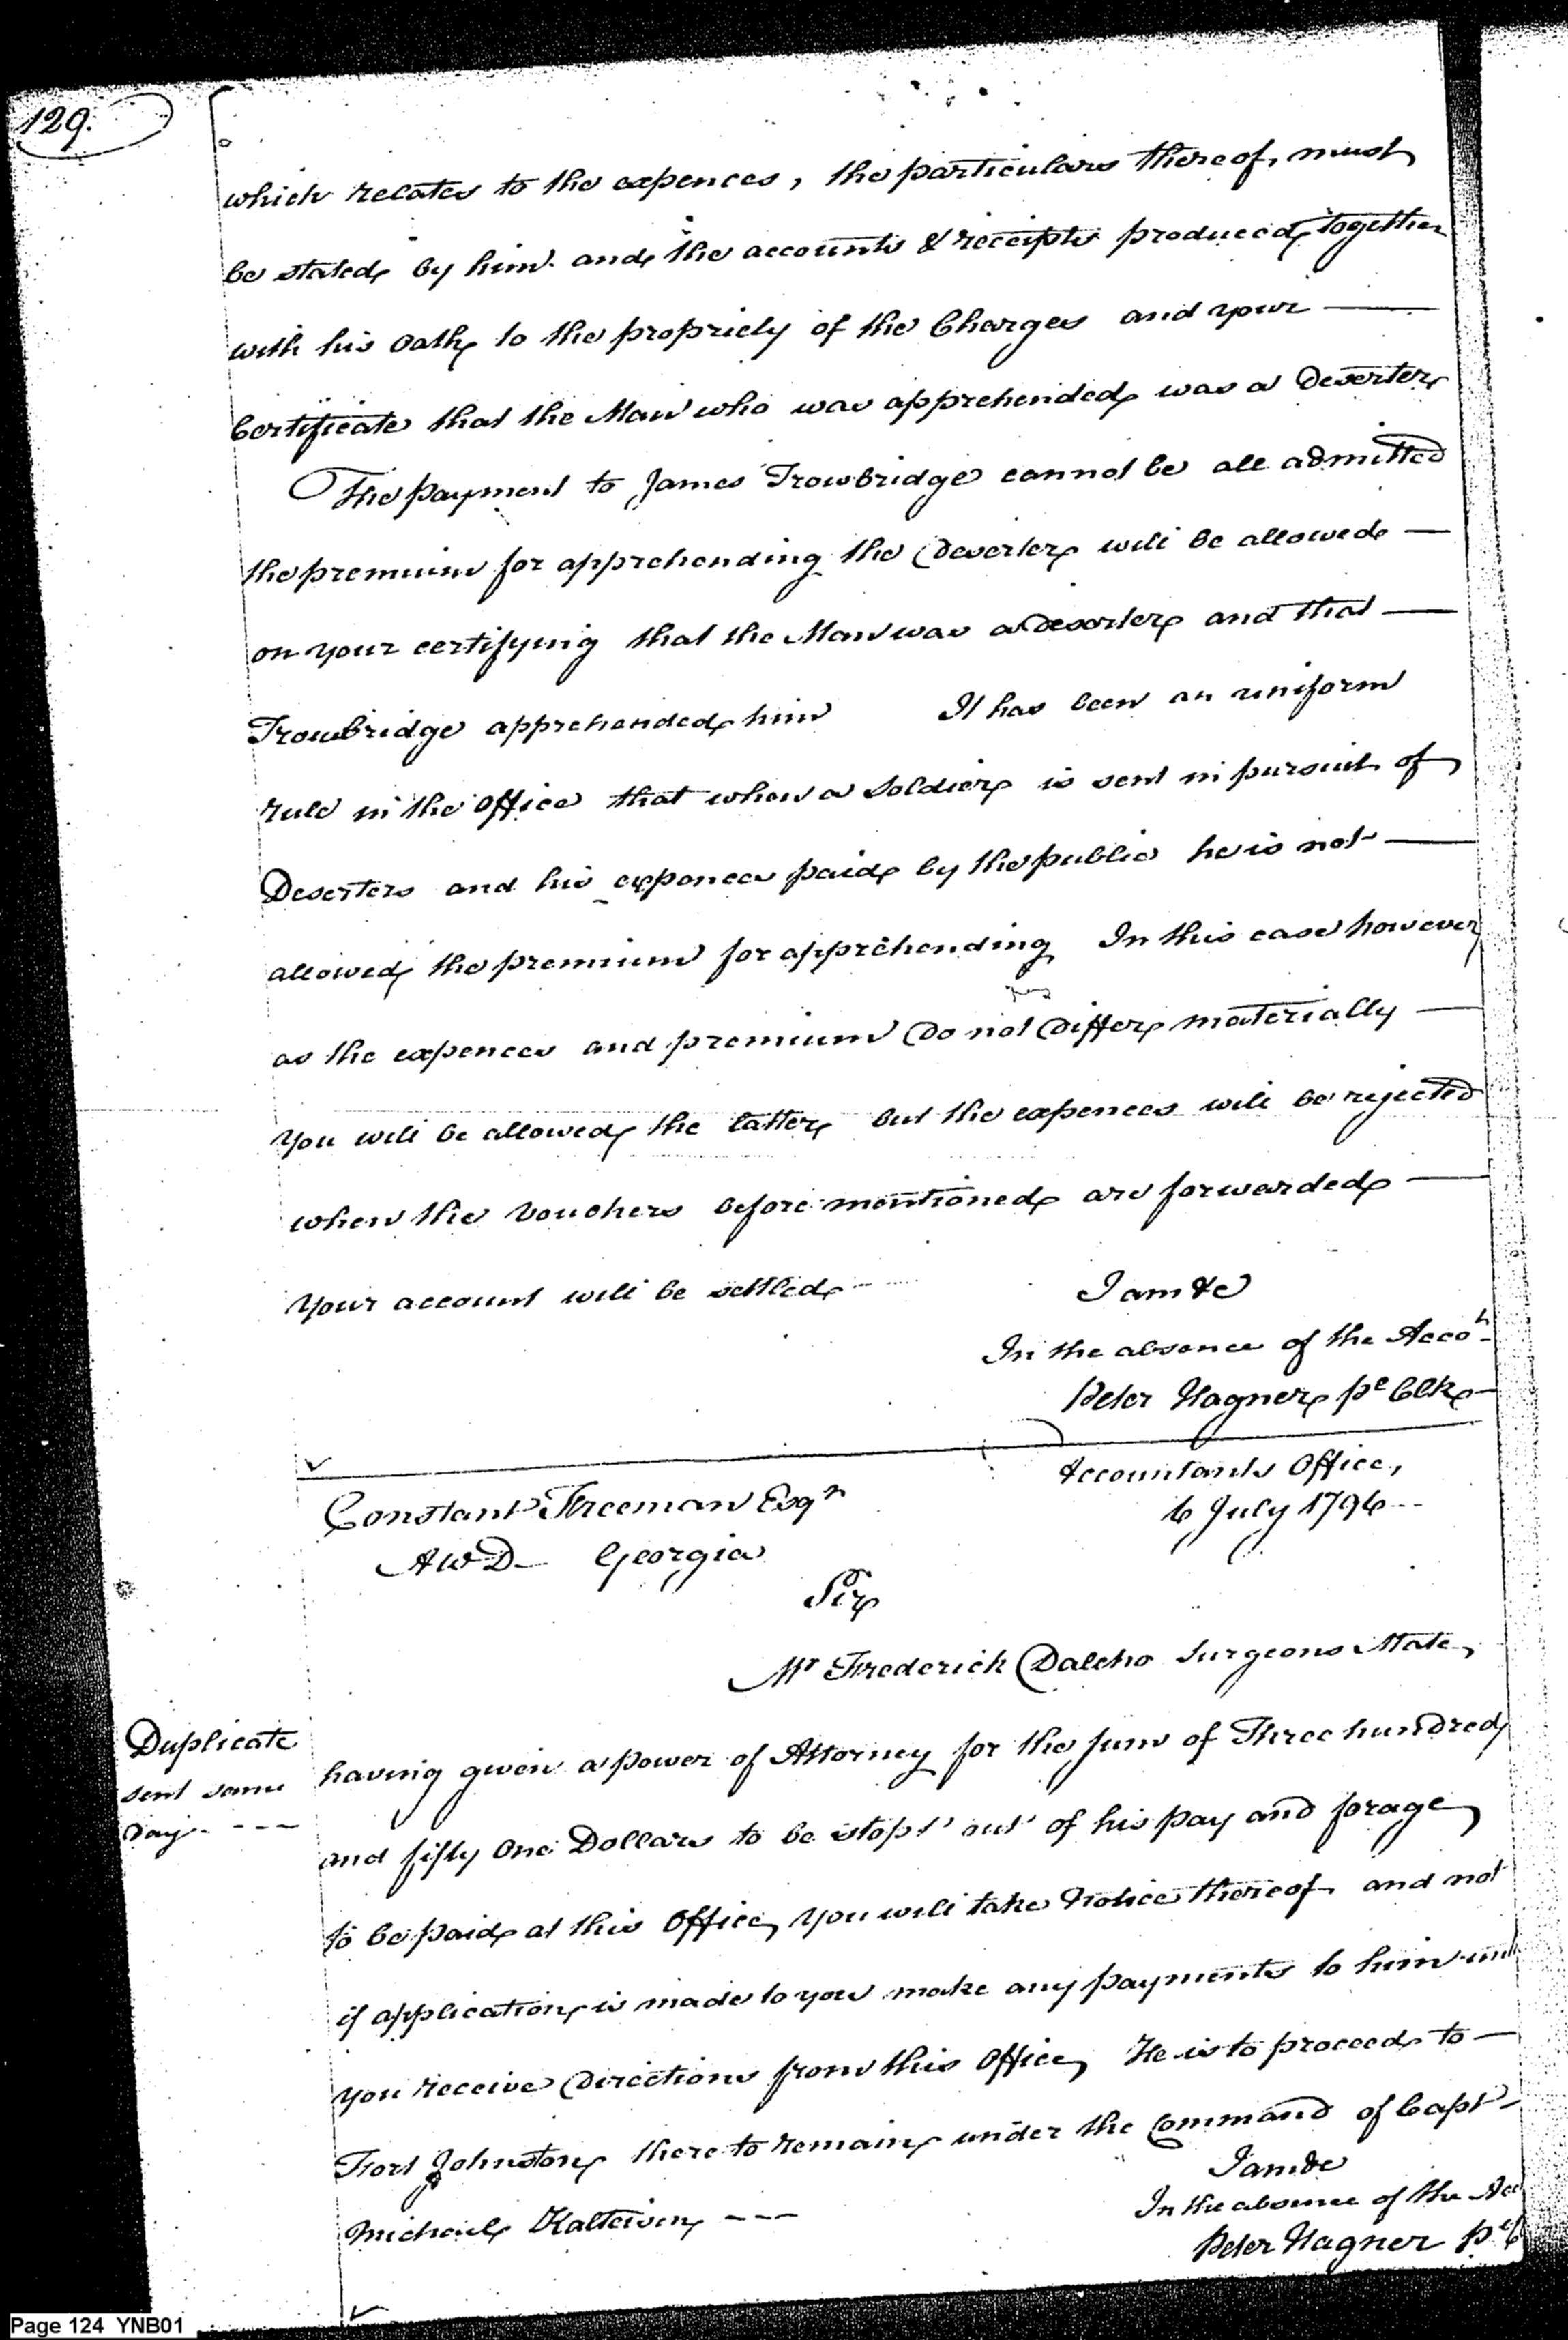 129.
which relates to the expences, the particulars thereof, must
be stated by him and the accounts & receipts produced, together
with his oath, to the propriety of the Charges and your —
Certificate that the Man who was apprehended was a Deserter
The payment to James Trowbridge cannot be all admitted
the premium for apprehending the Deserter will be allowed —
on your certifying that the Man was a deserter and that —
Trowbridge apprehended him It has been an uniform
rule in the Office that when a Soldier is sent in pursuit of
Deserters and his expences paid by the public he is not —
allowed the premium for apprehending In this case however
as the expences and premium do not differ materially —
you will be allowed the latter but the expences will be rejected
when the vouchers before mentioned are forwarded —
your account will be settled
I am &c
In the absence of the Acco.t
Peter Hagner p.l Clk
Constant Freeman Esqr
A W D — Georgia
Accountants Office,
6 July 1796
Sir
Mr Frederick Dalcho Surgeons Mate,
Duplicate
sent same
day - - -
having given a power of Attorney for the sum of Three hundred
and fifty One Dollars to be stopt out of his pay and forage
to be paid at this Office, you will take Notice thereof and not
if application is made to you make any payments to him until
you receive directions from this Office, He is to proceed to —
Fort Johnston there to remain under the Command of Capt
Michael Kalteisen - - -
I am &c
In the absence of the Acc
Peter Hagner p.l C
Page 124 YNB01